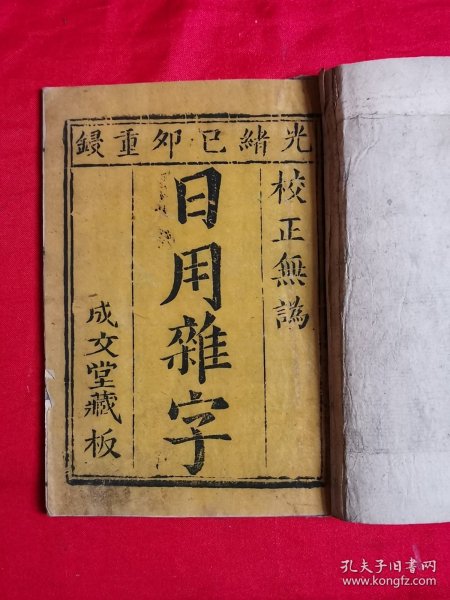 光緒己卯重鋟
校正無譌
日用雜字
成文堂藏板
孔夫子旧书网
www.kongfz.com